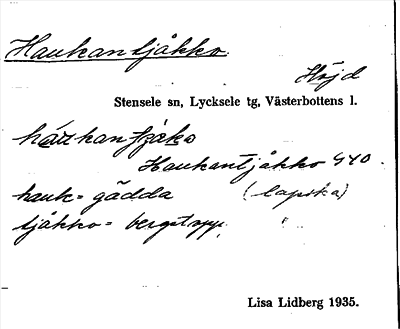 Haukantjåkko
Höjd
Stensele sn, Lycksele tg, Västerbottens l.
Haukantjåkko 440.
hauk = gädda (lapska)
tjåkko = bergstopp.
Lisa Lidberg 1935.